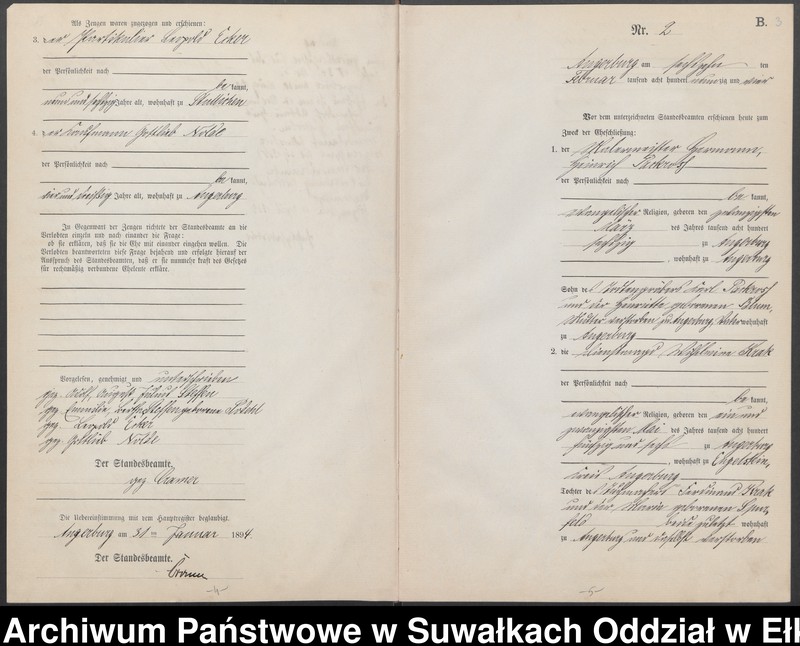 Als Zeugen waren zugezogen und erschienen:
3. der Partikulier Leopold Ecker
der Persönlichkeit nach
be kannt,
neun und sechzig Jahre alt, wohnhaft zu
4. der Kaufmann Gottlieb Nolde
der Persönlichkeit nach
be kannt,
vier und dreißig Jahre alt, wohnhaft zu Angerburg
In Gegenwart der Zeugen richtete der Standesbeamte an die
Verlobten einzeln und nach einander die Frage:
ob sie erklären, daß sie die Ehe mit einander eingehen wollen. Die
Verlobten beantworteten diese Frage bejahend und erfolgte hierauf der
Ausspruch des Standesbeamten, daß er sie nunmehr kraft des Gesetzes
für rechtmäßig verbundene Eheleute erkläre.
Vorgelesen, genehmigt und unterschrieben
gez. Adolf August Julius Steffen
gez. Emmilie, Bertha Steffen geborene
gez. Leopold Ecker
gez. Gottlieb Nolde
Der Standesbeamte.
gez. Cramer
Die Uebereinstimmung mit dem Hauptregister beglaubigt.
Angerburg am 31 ten Januar 1894
Der Standesbeamte.
Cramer
-4-
B. 3
Nr. 2
Angerburg am sechszehn ten
Februar tausend acht hundert neunzig und vier
Vor dem unterzeichneten Standesbeamten erschienen heute zum
Zweck der Eheschließung:
1. der Malermeister Hermann,
Heinrich Packroff
der Persönlichkeit nach
be kannt,
evangelischer Religion, geboren den zwanzigsten
März des Jahres tausend acht hundert
sechszig zu Angerburg
, wohnhaft zu Angerburg
Sohn des Todtengräbers Karl Packroff
und der Henriette geborenen Blum,
Mutter verstorben zu Angerburg, Vater wohnhaft
zu Angerburg
2. die Dienstmagd Wilhelmine Krak
der Persönlichkeit nach
be kannt,
evangelischer Religion, geboren den ein und
zwanzigsten Mai des Jahres tausend acht hundert
fünfzig und sechs zu Angerburg
, wohnhaft zu Engelstein,
Kreis Angerburg
Tochter des Ferdinand Krak
und der Marie geborenen
beide zuletzt wohnhaft
zu Angerburg und daselbst verstorben
-5-
Archiwum Państwowe w Suwałkach Oddział w Ełk